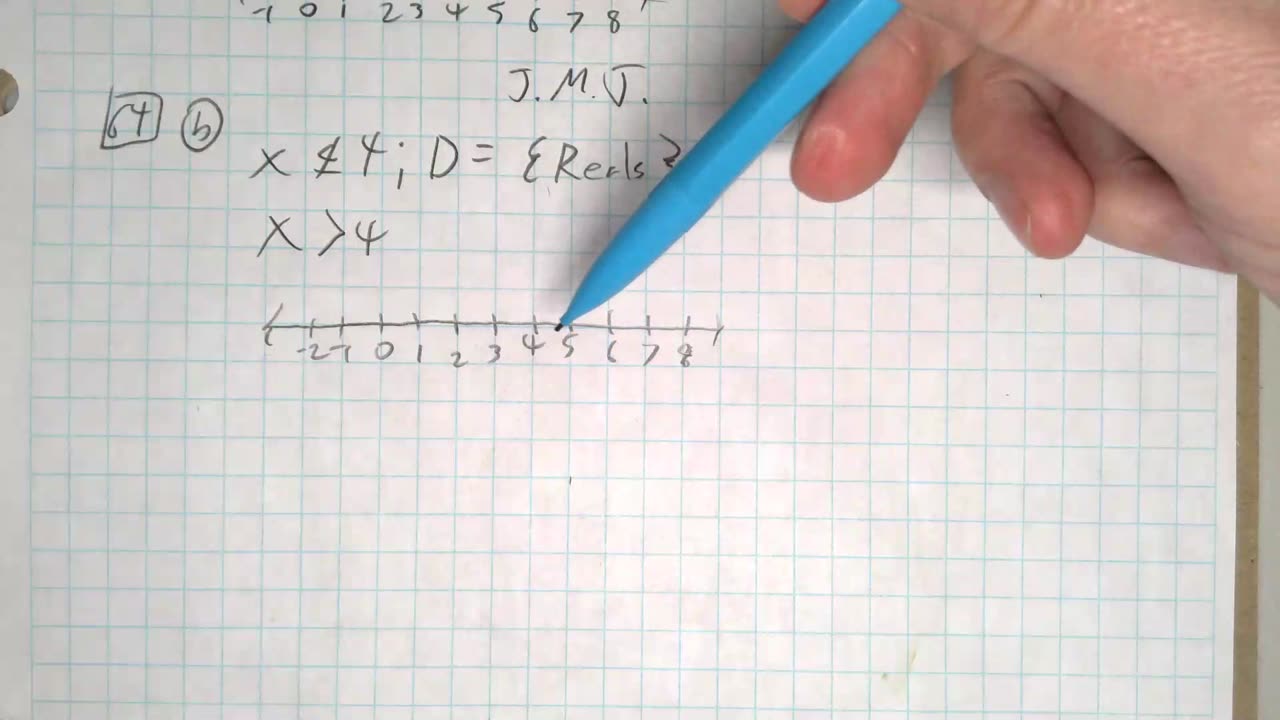 -1 0 1 2 3 4 5 6 7 8
J.M.J.
64 b
x ≮ 4; D = {Reals}
x > 4
-2 -1 0 1 2 3 4 5 6 7 8